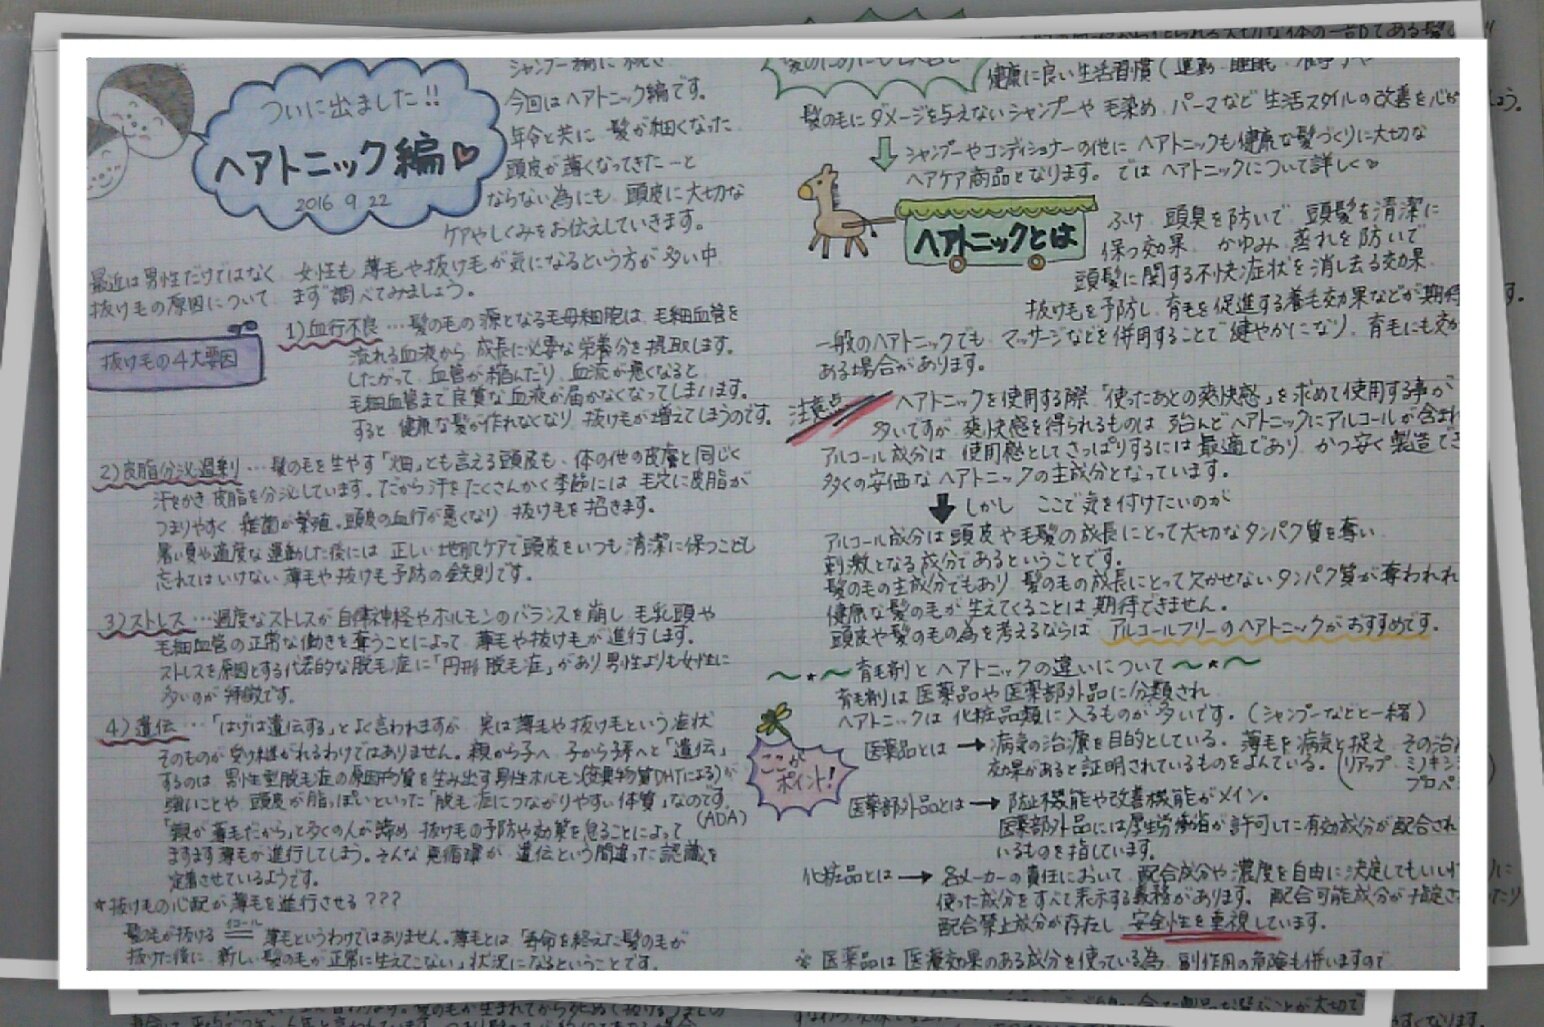 ついに出ました!!
ヘアトニック編♡
2016 9.22
シャンプー編に続き
今回はヘアトニック編です。
年令と共に 髪が細くなった
頭皮が薄くなってきたーと
ならない為にも 頭皮に大切な
ケアやしくみをお伝えしていきます。
最近は男性だけではなく 女性も 薄毛や抜け毛が気になるという方が多い中
抜け毛の原因について まず調べてみましょう。
抜け毛の4大要因
1)血行不良…髪の毛の源となる毛母細胞は、毛細血管を
流れる血液から 成長に必要な栄養分を摂取します。
したがって 血管が縮んだり 血流が悪くなると
毛細血管まで良質な血液が届かなくなってしまいます。
すると 健康な髪が作れなくなり 抜け毛が増えてしまうのです。
2)皮脂分泌過剰…髪の毛を生やす「畑」とも言える頭皮も、体の他の皮膚と同じく
汗をかき 皮脂を分泌しています。だから汗をたくさんかく季節には 毛穴に皮脂が
つまりやすく 雑菌が繁殖。頭皮の血行が悪くなり 抜け毛を招きます。
暑い夏や適度な運動した後には 正しい地肌ケアで頭皮をいつも清潔に保つことも
忘れてはいけない 薄毛や抜け毛予防の鉄則です。
3)ストレス…過度なストレスが自律神経やホルモンのバランスを崩し 毛乳頭や
毛細血管の正常な働きを奪うことによって 薄毛や抜け毛が進行します。
ストレスを原因とする代表的な脱毛症に「円形脱毛症」があり男性よりも女性に
多いのが特徴です。
4)遺伝…「はげは遺伝する」とよく言われますが 実は薄毛や抜け毛という症状
そのものが受け継がれるわけではありません。親から子へ 子から孫へと「遺伝」
するのは 男性型脱毛症の原因物質を生み出す男性ホルモン(変異物質DHTによる)が
強いことや 頭皮が脂っぽいといった「脱毛症につながりやすい体質」なのです。
(ADA)
「親が薄毛だから」と多くの人が諦め 抜け毛の予防や対策を怠ることによって
ますます薄毛が進行してしまう。そんな悪循環が 遺伝という間違った認識を
定着させているようです。
*抜け毛の心配が薄毛を進行させる???
髪の毛が抜ける イコール = 薄毛というわけではありません。薄毛とは「寿命を終えた髪の毛が
抜けた後に 新しい髪の毛が正常に生えてこない」状況になるということです。
健康に良い生活習慣(運動 睡眠
髪の毛にダメージを与えないシャンプーや毛染め パーマなど生活スタイルの改善を心が
シャンプーやコンディショナーの他に ヘアトニックも健康な髪づくりに大切な
ヘアケア商品となります。ではヘアトニックについて詳しく♡
ヘアトニックとは
ふけ 頭臭を防いで 頭髪を清潔に
保つ効果 かゆみ 蒸れを防いで
頭髪に関する不快症状を消し去る効果
抜け毛を予防し 育毛を促進する養毛効果などが期待
一般のヘアトニックでも マッサージなどを併用することで健やかになり 育毛にも効
ある場合があります。
注意点
ヘアトニックを使用する際「使ったあとの爽快感」を求めて使用する事が
多いですが 爽快感を得られるものは 殆んどヘアトニックにアルコールが含まれ
アルコール成分は 使用感としてさっぱりするには最適であり かつ安く製造でき
多くの安価なヘアトニックの主成分となっています。
しかし ここで気を付けたいのが
アルコール成分は頭皮や毛髪の成長にとって大切なタンパク質を奪い
刺激となる成分であるということです。
髪の毛の主成分でもあり 髪の毛の成長にとって欠かせないタンパク質が奪われれ
健康な髪の毛が生えてくることは期待できません。
頭皮や髪の毛の為を考えるならば アルコールフリーのヘアトニックがおすすめです。
〜*〜育毛剤とヘアトニックの違いについて〜*〜
育毛剤は医薬品や医薬部外品に分類され
ヘアトニックは化粧品類に入るものが多いです。(シャンプーなどと一緒)
ここがポイント!
医薬品とは→病気の治療を目的としている。薄毛を病気と捉え その治
効果があると証明されているものをよんでいる。(リアップ ミノキシ
プロペ
医薬部外品とは→防止機能や改善機能がメイン。
医薬部外品には厚生労働省が許可した有効成分が配合され
いるものを指しています。
化粧品とは→各メーカーの責任において 配合成分や濃度を自由に決定してもいい
使った成分をすべて表示する義務があります。配合可能成分が指定さ
配合禁止成分が存在し 安全性を重視しています。
※医薬品は医療効果のある成分を使っている為 副作用の危険も併いますので